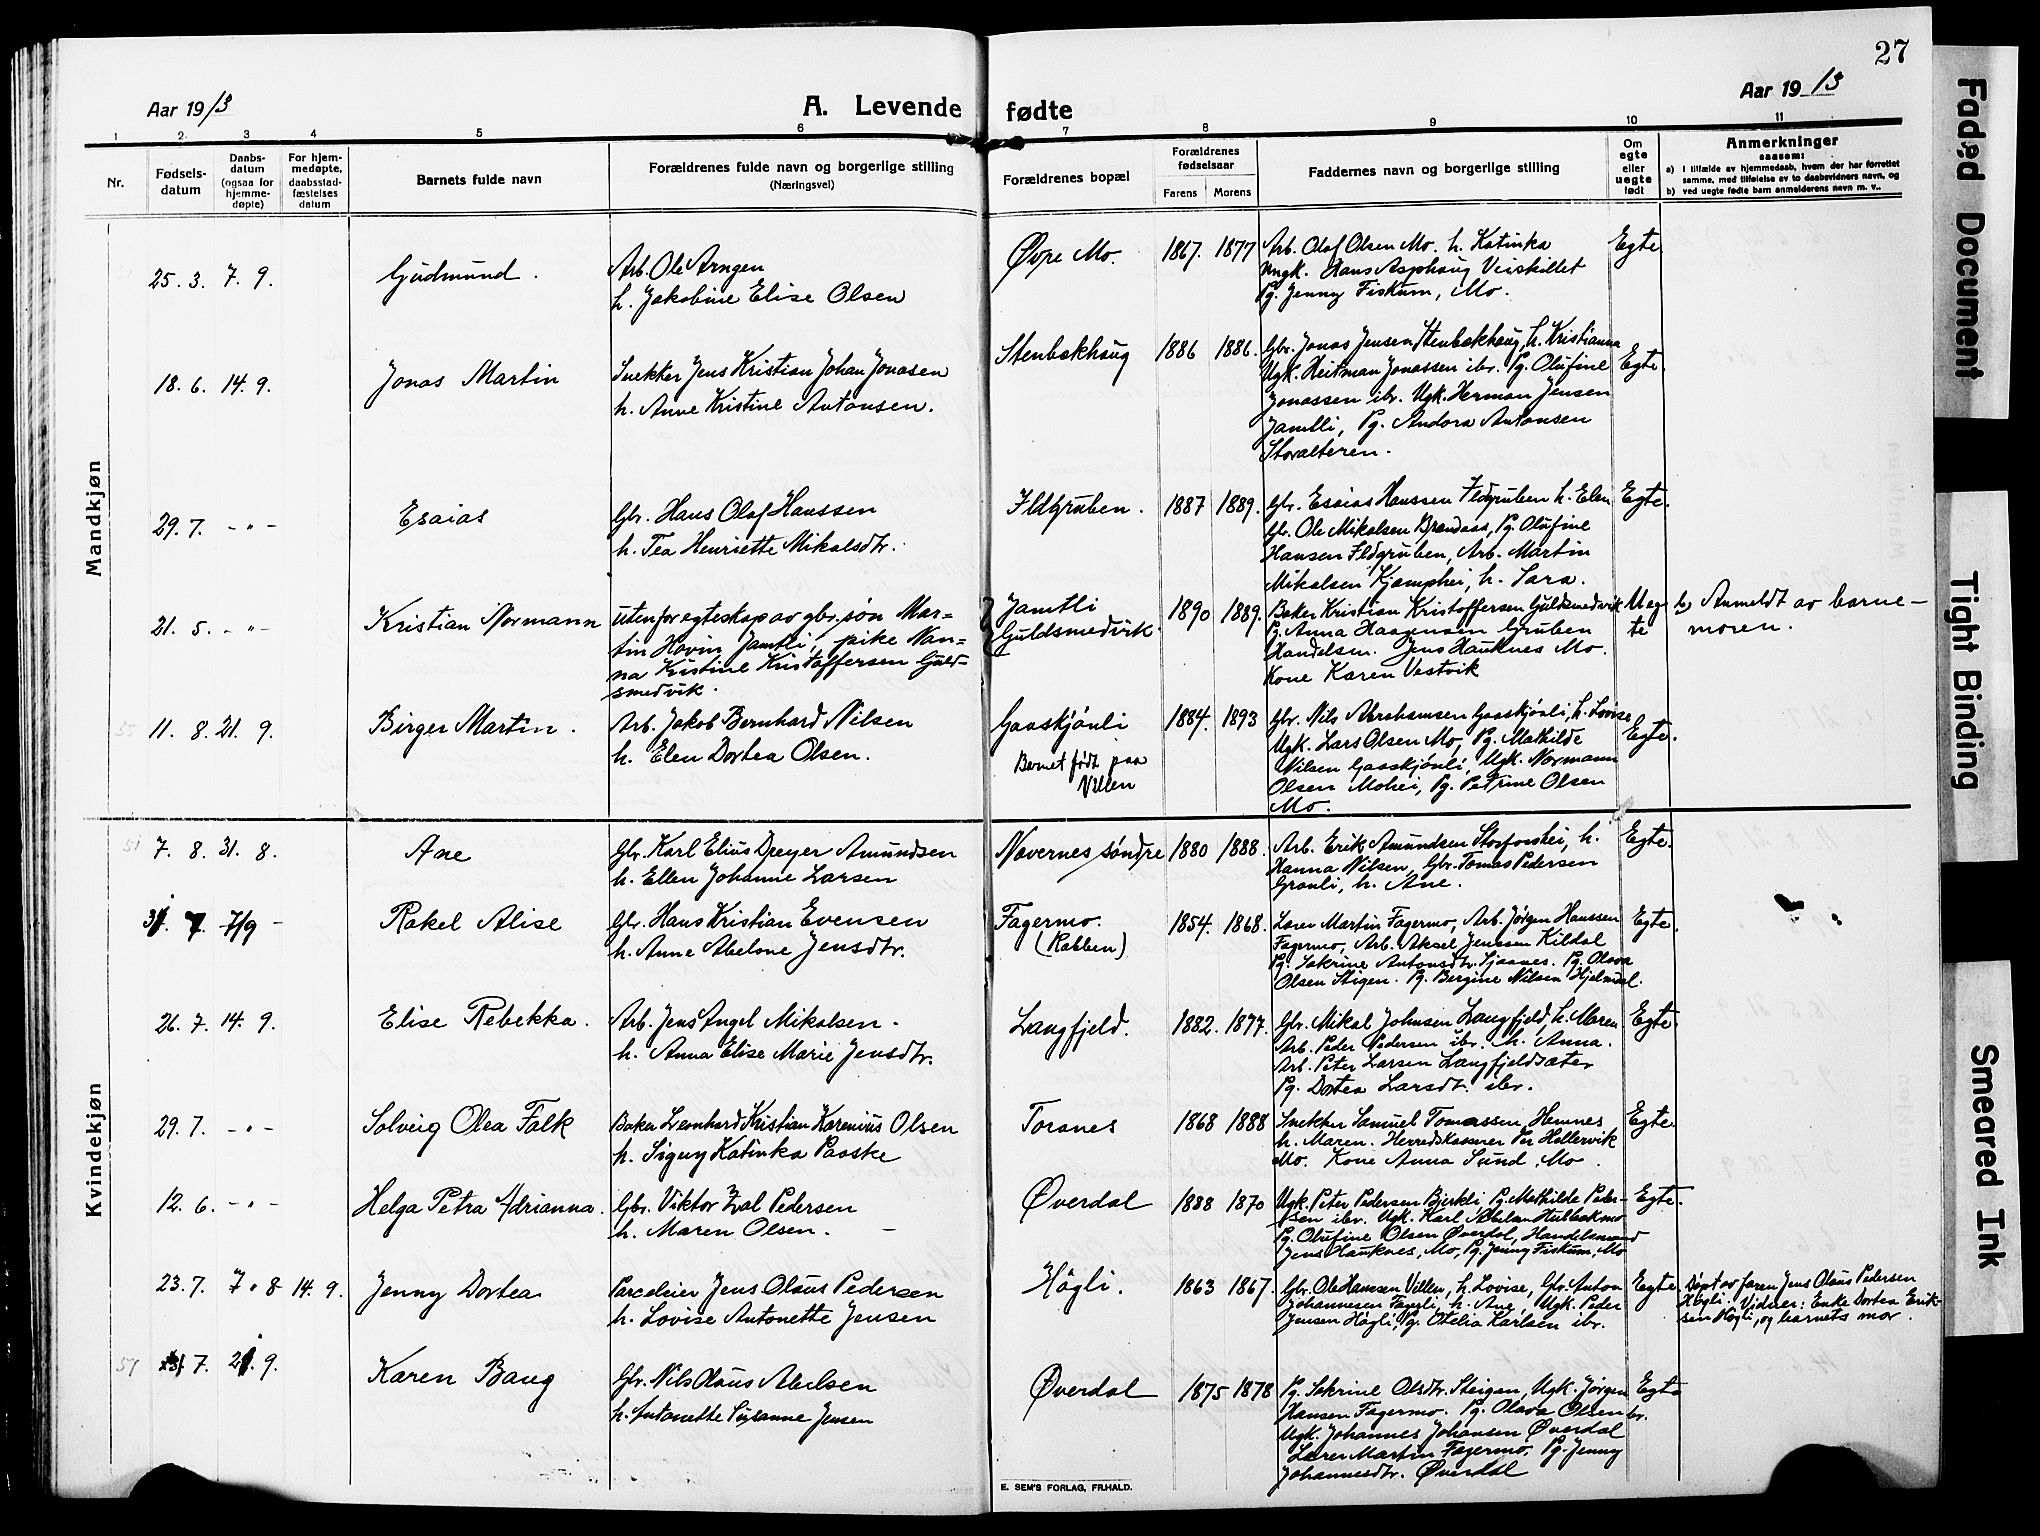 27
Aar 1913
A. Levende fødte
Aar 1913
1 2 3 4 5 6 7 8 9 10 11
Nr.
Fødsels-
datum
Daabs-
datum
(ogsaa for
hjemme-
døpte)
For hjem-
medøpte,
daabsstad-
fæstelses
datum
Barnets fulde navn
Forældrenes fulde navn og borgerlige stilling
(Næringsvei)
Forældrenes bopæl
Forældrenes
fødselsaar
Farens Morens
Faddernes navn og borgerlige stilling
Om
egte
eller
uegte
født
Anmerkninger
saasom:
a) i tilfælde av hjemmedaab, hvem der har forrettet
samme, med tilføielse av to daabsvidners navn, og
b) ved uegte fødte barn anmelderens navn m. v..
Mandkjøn
25. 3. 7. 9.
Gudmund.
Arb. Ole Arngen
h. Jakobine Elise Olsen
Øvre Mo.
1867. 1877
Arb. Olaf Olsen Mo. h. Katinka
Ungk. Hans Asphaug Veiskillet
Pg. Jenny Fiskum, Mo.
Egte
18. 6. 14. 9.
Jonas Martin
Snekker Jens Kristian Johan Jonasen
h. Anne Kristine Antonsen.
Stenbækhaug
1886 1886.
Gbr. Jonas Jensen Stenbækhaug, h. Kristianna
Ugk. Reitman Jonassen ibr. Pg. Olufine
Jonassen ibr. Ugk. Herman Jensen
Jamtli, Pg. Andora Antonsen
Storalteren.
Egte.
29. 7. - " -
Esaias
Gbr. Hans Olaf Hanssen
h. Tea Henriette Mikalsdtr.
Ildgruben.
1887 1889.
Gbr. Esaias Hanssen Ildgruben h. Elen
Gbr. Ole Mikalsen Brandaas, Pg. Olufine
Hansen Ildgruben, Arb. Martin
Mikalsen Kjamphei, h. Sara.
Egte.
21. 5. - " -
Kristian Normann
utenfor egteskap av gbr. søn Mar-
tin Hovin Jamtli, pike Nan-
na Kristine Kristoffersen Guld-
smedvik.
Jamtli
Guldsmedvik.
1890 1889.
Baker Kristian Kristoffersen Guldsmedvik
Pg. Anna Haagensen Gruben
Handelsm. Jens Hauknes Mo.
Kone Karen Vestvik
Ueg-
te
b) Anmeldt av barne-
moren.
55 11. 8. 21. 9.
Birger Martin.
Arb. Jakob Bernhard Nilsen
h. Elen Dortea Olsen.
Gaaskjønli
Barnet født paa
Villen
1884. 1893
Gbr. Nils Abrahamsen Gaaskjønli, h. Lovise
Ugk. Lars Olsen Mo, Pg. Mathilde
Nilsen Gaaskjønli, Ugk. Normann
Olsen Mohei, Pg. Petrine Olsen
Mo.
Egte.
Kvindekjøn
51 7. 8. 31. 8.
Ane
Gbr. Karl Elius Dreyer Amundsen
h. Ellen Johanne Larsen
Nævernes søndre
1880 1888.
Arb. Erik Amundsen Storforshei, h.
Hanna Nilsen, Gbr. Tomas Pedersen
Granli, h. Ane.
Egte.
31 7. 7/9 -
Rakel Alise
Gbr. Hans Kristian Evensen
h. Anne Abelone Jensdtr.
Fagermo.
(Rabben)
1854. 1868.
Lærer Martin Fagermo, Arb. Jørgen Hanssen
Fagermo, Arb. Aksel Jenssen Kildal
Pg. Sakrine Antonsdtr. Sjaanes. Pg. Olava
Olsen Stigen. Pg. Bergine Nilsen Hjelmdal.
Egte.
26. 7. 14. 9.
Elise Rebekka.
Arb. Jens Angel Mikalsen.
h. Anna Elise Marie Jensdtr.
Langfjeld.
1882. 1877.
Gbr. Mikal Johnsen Langfjeld, h. Maren
Arb. Peder Pedersen ibr. h. Anna.
Arb. Peter Larsen Langfjeldsæter
Pg. Dortea Larsdtr. ibr.
Egte.
29. 7. - " -
Solveig Olea Falk
Baker Lernhard Kristian Karenius Olsen
h. Signy Katinka Paaske
Toranes
1868 1888
Snekker Samuel Tomassen Hemnes
h. Maren. Herredskasserer Per Hellervik
Mo. Kone Anna Sund, Mo.
Egte.
12. 6. - " -
Helga Petra Adrianna.
Gbr. Viktor Zval Pedersen
h. Maren Olsen. -
Øverdal
1888 1870
Ugk. Peter Pedersen Bjerkli, Pg. Mathilde Peder-
sen ibr. Ugk. Karl Abelsen Hulbækmo
Pg. Olufine Olsen Øverdal, Handelsmand
Jens Hauknes, Mo, Pg. Jenny Fiskum, Mo
Egte.
23. 7. 7. 8 14. 9.
Jenny Dortea
Parceleier Jens Olaus Pedersen
h. Lovise Antonette Jensen
Høgli.
1863 1867.
Gbr. Ole Hanssen Villen, h. Lovise, Gbr. Anton
Johannesen Fagli, h. Ane, Ugk. Peder
Jensen Høgli, Pg. Otelia Karlsen ibr.
Egte
Døpt av faren Jens Olaus Pedersen
Høgli. Vidner: Enke Dortea Erik-
sen Høgli, og barnets mor.
57 7. 21. 9.
Karen Baug
Gbr. Nils Olaus Abelsen
h. Antonette Susanne Jensen
Øverdal
1875 1878
Pg. Sakrine Olsdtr. Steigan, Ugk. Jørgen
Hansen Fagermo. Pg. Olava Olsen ibr.
Ugk. Johannes Johansen Øverdal
Lærer Martin Fagermo, Pg. Jenny
Johannesdtr. Øverdal
Egte
E. SEM'S FORLAG, FR.HALD.
Faded Document
Tight Binding
Smeared Ink